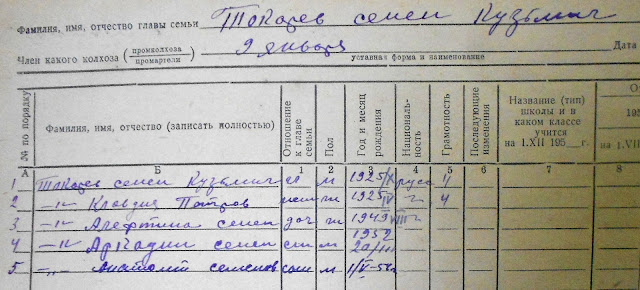 Фамилия, имя, отчество главы семьи Токарев семен Кузьмич
Член какого колхоза (промколхоза промартели) 9 января Дата
уставная форма и наименование
№ по порядку Фамилия, имя, отчество (записать полностью) Отношение к главе семьи Пол Год и месяц рождения Националь-ность Грамотность Последующие изменения Название (тип) школы и в каком классе учится на 1.VII 195__г. От 195 на 1.VII
А Б 1 2 3 4 5 6 7 8
1 Токарев семен Кузьмич м 1925/X русс 4
2 -"- Клавдия Петров ж 1925 IV -"- 4
3 -"- Алефтина семен доч ж 1949 VIII -"-
4 -"- Аркадий семен сын м 1952 20/III
5 -"- Анатолий семенов сын м 1/V-54